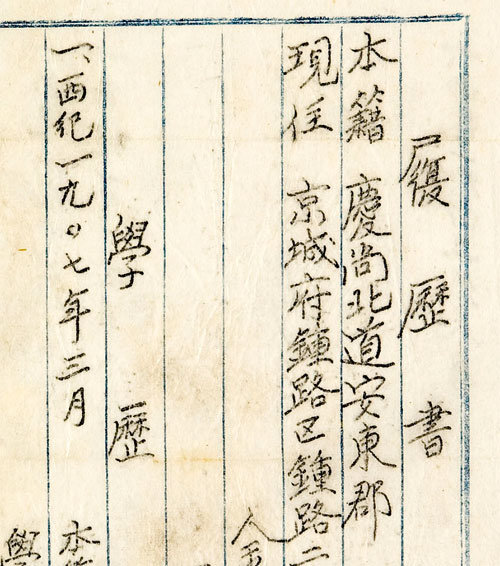 履歷書
本籍 慶尚北道安東郡
現住 京城府鍾路区鍾路二
學歷
一、西紀一九〇七年三月
本
學